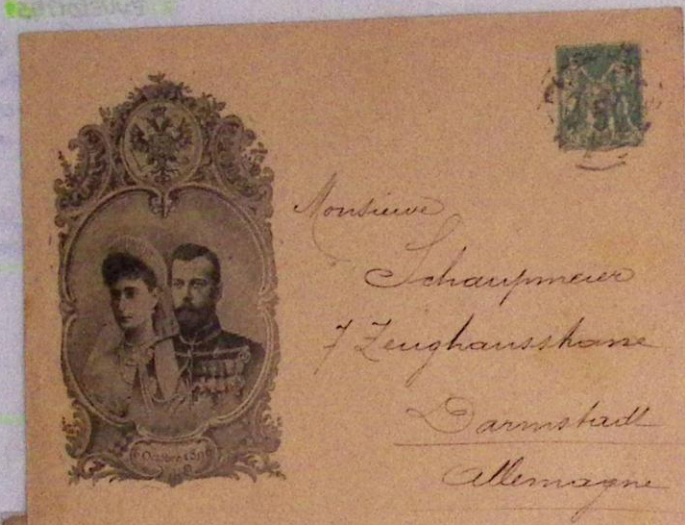 Monsieur
Schaupmeier
7 Zeughausstrasse
Darmstadt
Allemagne
Octobre